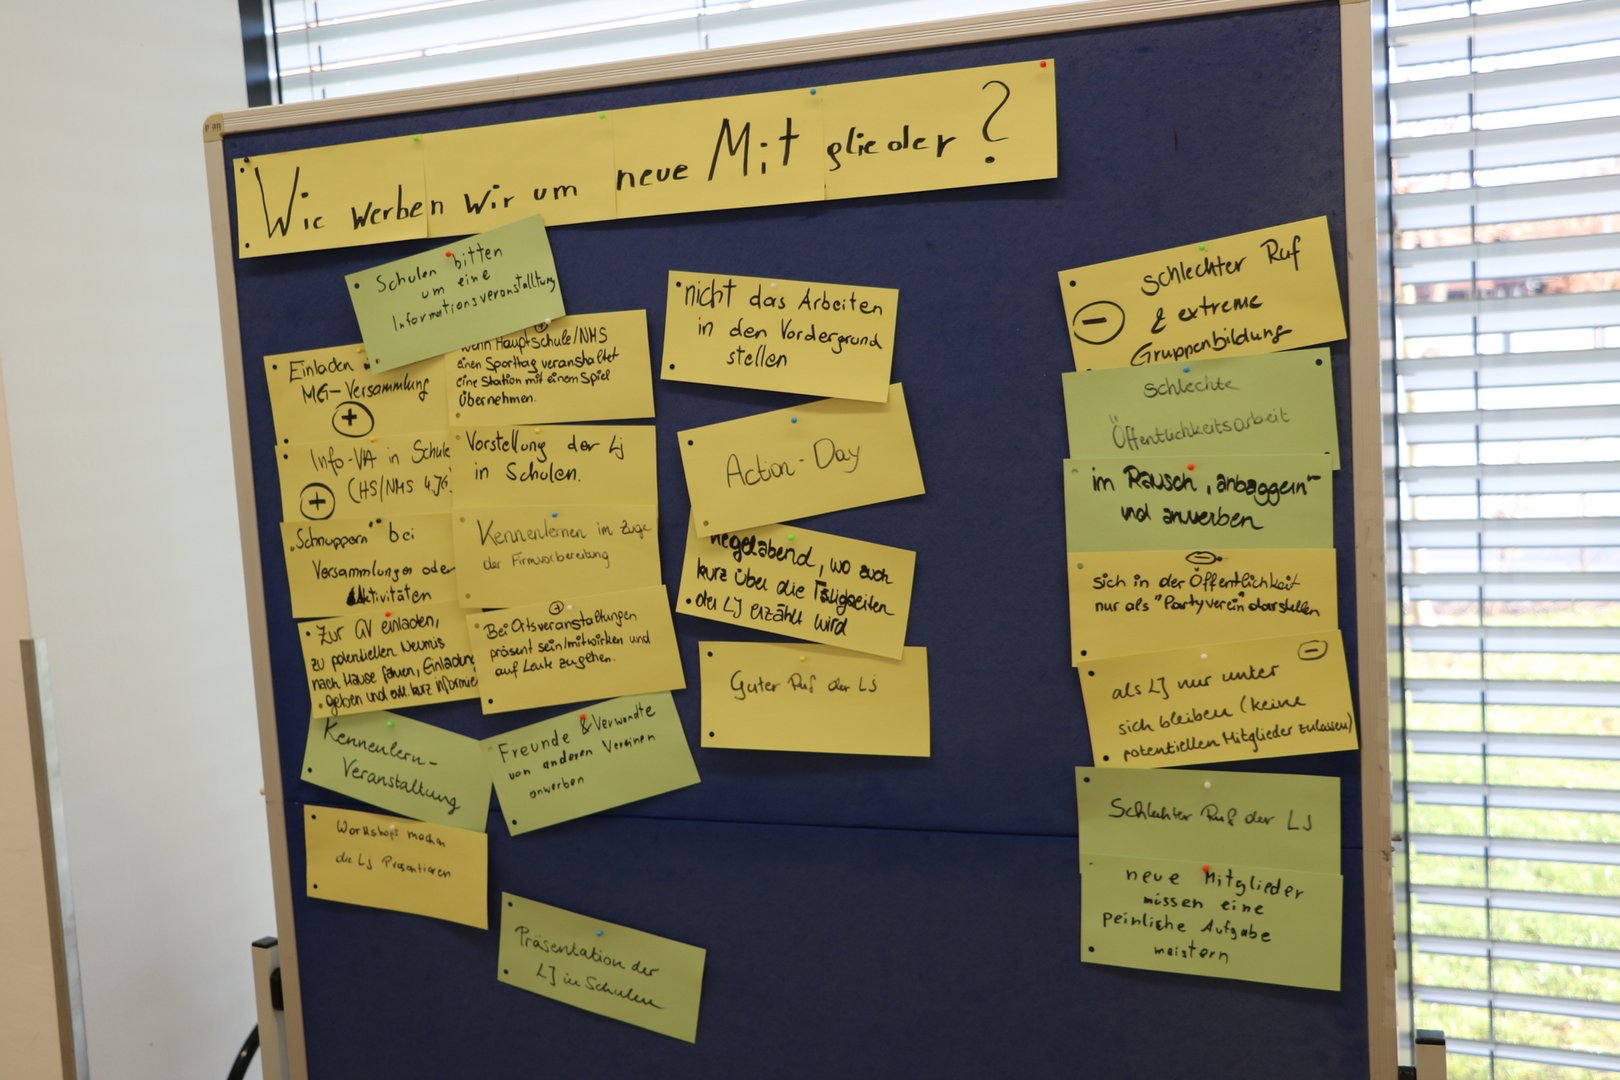 Wie werben wir um neue Mitglieder?
Schulen bitten
um eine
Informationsveranstaltung
Einladen
MG-Versammlung
+
Info-VA in Schule
(HS/NMS 4.
+
"Schnuppern" bei
Versammlungen oder
Aktivitäten
Zur GV einladen,
zu potentiellen Neumis
nach Hause fahren, Einladung
geben und evtl. kurz informie
Kennenlern-
Veranstaltung
Workshops machen
die Lj Präsentieren
+
wenn Hauptschule/NMS
einen Sporttag veranstaltet
eine Station mit einem Spiel
übernehmen.
Vorstellung der Lj
in Schulen.
Kennenlernen im Zuge
der Firmvorbereitung
+
Bei Ortsveranstaltungen
präsent sein/mitwirken und
auf Leute zugehen.
Freunde & Verwandte
von anderen Vereinen
anwerben
Präsentation der
LJ in Schulen
nicht das Arbeiten
in den Vordergrund
stellen
Action-Day
Kegelabend, wo auch
kurz über die Tätigkeiten
der LJ erzählt wird
Guter Ruf der LJ
schlechter Ruf
- & extreme
Gruppenbildung
schlechte
Öffentlichkeitsarbeit
im Rausch "anbaggern"
und anwerben
-
sich in der Öffentlichkeit
nur als "Partyverein" darstellen
-
als LJ nur unter
sich bleiben (keine
potentiellen Mitglieder zulassen)
Schlechter Ruf der LJ
neue Mitglieder
müssen eine
peinliche Aufgabe
meistern